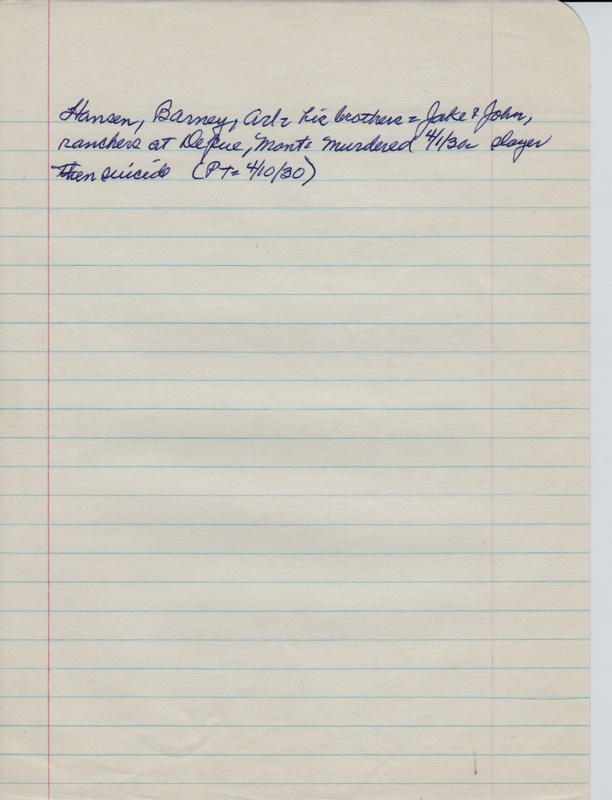 Hansen, Barney, Arl = his brothers = Jake & John,
ranchers at Depue, Mont = murdered 4/1/30 = slayer
then suicide (PT = 4/10/30)